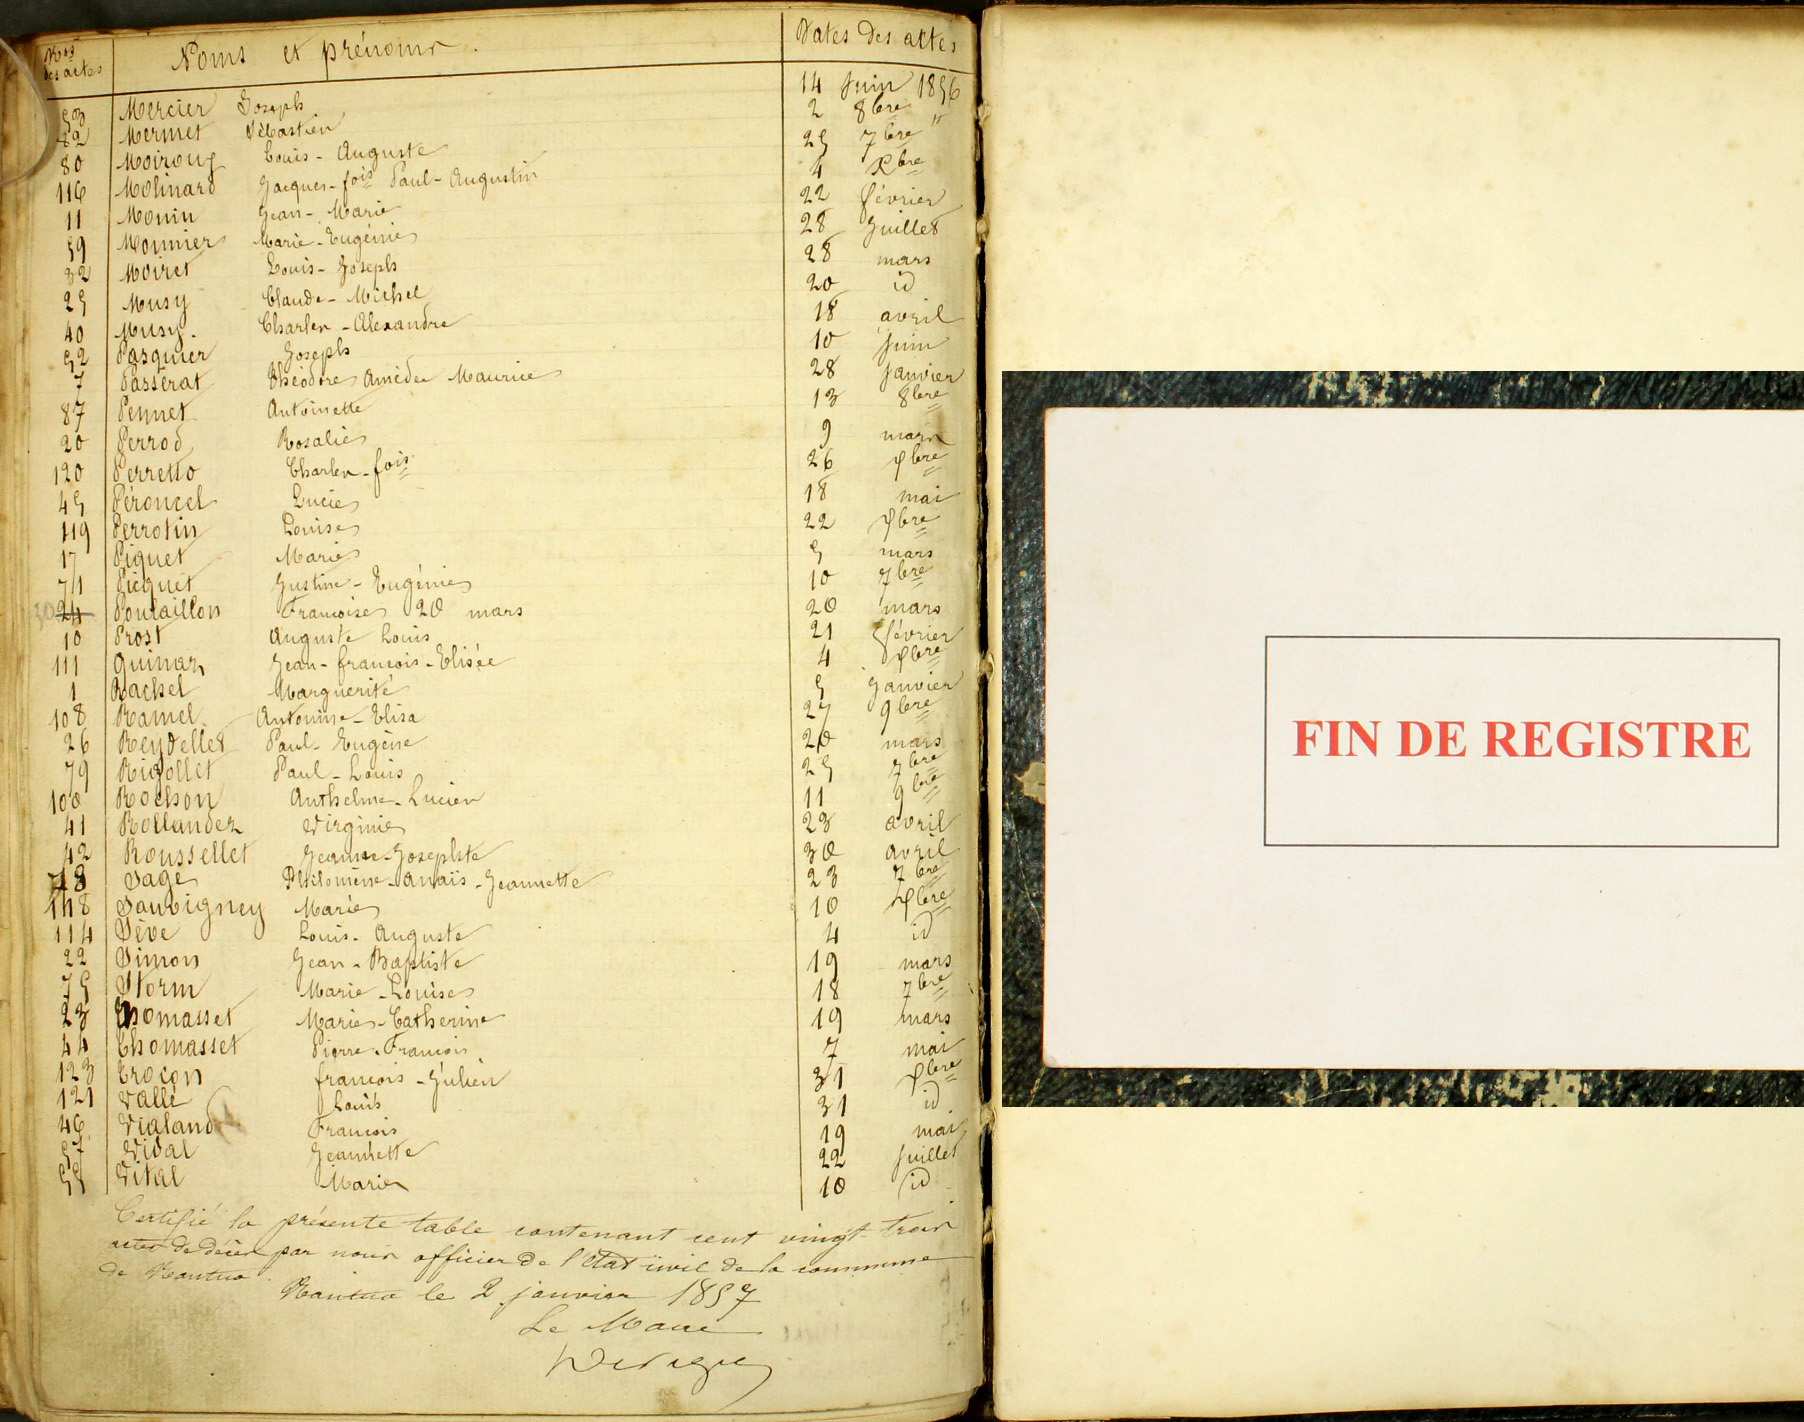 Nos des actes Noms et prénoms. Dates des actes
53 Mercier Joseph 14 Juin 1856
82 Mermet Sébastien 2 8bre "
80 Moiroux Louis-Auguste 25 7bre
116 Molinard Jacques-fois Paul-Augustin 4 Xbre
11 Monin Jean-Marie 22 février
59 Monnier Marie-Eugénie 28 Juillet
32 Moiret Louis-Joseph 28 mars
25 Musy Claude-Michel 20 id
40 Musy. Charles-Alexandre 18 avril
52 Pasquier Joseph 10 Juin
7 Passerat Théodore Amédée Maurice 28 Janvier
87 Pennet Antoinette 13 8bre
20 Perrod Rosalie 9 mars
120 Perretto Charles-fois 26 Xbre
45 Péroncel Lucie 18 mai
119 Perrotin Louise 22 Xbre
17 Piquet Marie 5 mars
71 Picquet Justine-Eugénie 10 7bre
30 24 Poulaillon Françoise 20 mars 20 mars
10 Prost Auguste Louis 21 février
111 Quinaz Jean-françois-Elisée 4 Xbre
1 Rachel Marguerite 5 Janvier
108 Ramel Antonine-Elisa 27 9bre
26 Reydellet Paul-Eugène 20 mars
79 Rigollet Paul-Louis 25 7bre
100 Rochon Anthelme-Lucien 11 9bre
41 Rollandez Virginie 23 avril
42 Roussellet Jeanne-Josephte 30 avril
78 Sage Philomène-anaïs-Jeannette 23 7bre
118 Sauvigney Marie 10 Xbre
114 Sève Louis-Auguste 4 id
22 Simon Jean-Baptiste 19 mars
75 Storm Marie-Louise 18 7bre
23 Thomasset Marie-Catherine 19 mars
44 Thomasset Pierre-François 7 mai
123 Trocon françois-Julien 31 Xbre
121 Vallé Louis 31 id
46 Vialand François 19 mai
57 Vidal Jeannette 22 Juillet
55 Vital Marie 10 id
Certifié la présente table contenant cent vingt-trois
actes de décès par nous officier de l'état civil de la commune
de Nantua.
Nantua le 2 janvier 1857
Le Maire
FIN DE REGISTRE